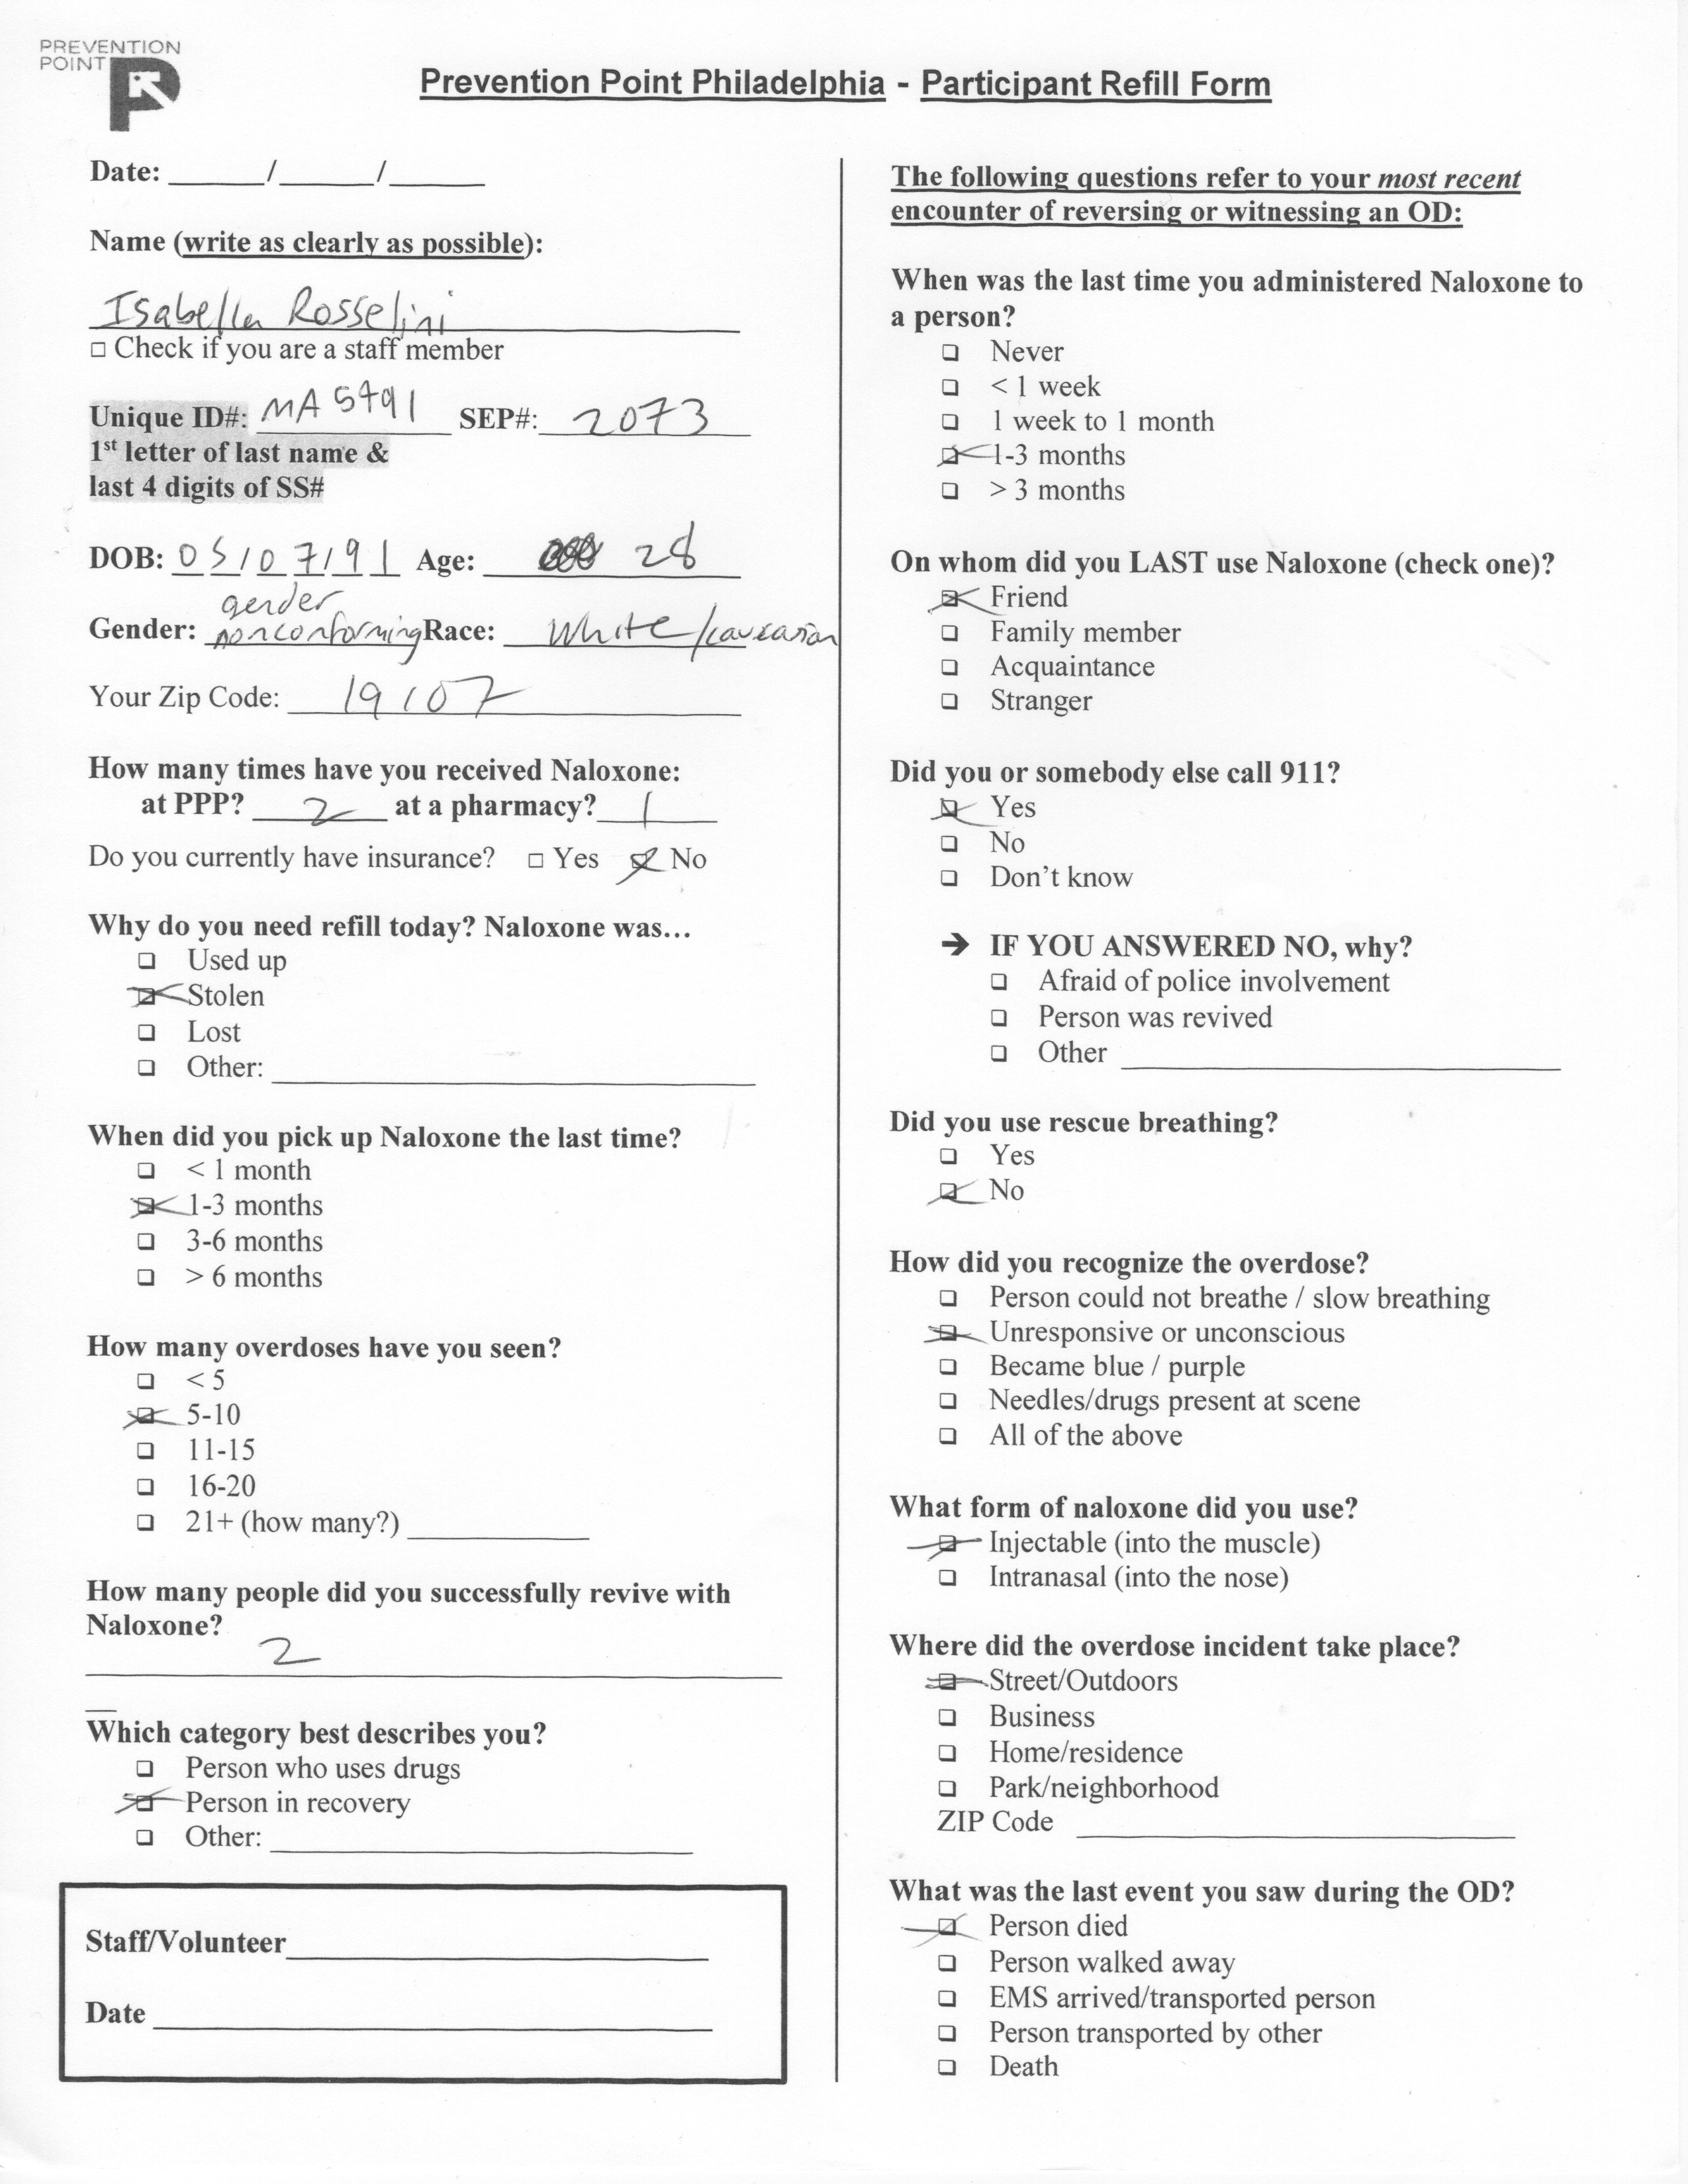 PREVENTION
POINT
Prevention Point Philadelphia - Participant Refill Form
Date: ______/______/______
Name (write as clearly as possible):
Isabella Rosselini
□ Check if you are a staff member
Unique ID#: MA5791 SEP#: 2073
1st letter of last name &
last 4 digits of SS#
DOB: 05/07/91 Age: 28
gender
Gender: nonconforming Race: White/caucasian
Your Zip Code: 19107
How many times have you received Naloxone:
at PPP? 2 at a pharmacy? 1
Do you currently have insurance? □ Yes ☒ No
Why do you need refill today? Naloxone was…
❑ Used up
☒ Stolen
❑ Lost
❑ Other: ______
When did you pick up Naloxone the last time?
❑ < 1 month
☒ 1-3 months
❑ 3-6 months
❑ > 6 months
How many overdoses have you seen?
❑ < 5
☒ 5-10
❑ 11-15
❑ 16-20
❑ 21+ (how many?) ______
How many people did you successfully revive with
Naloxone?
2
Which category best describes you?
❑ Person who uses drugs
☒ Person in recovery
❑ Other: ______
Staff/Volunteer______
Date ______
The following questions refer to your most recent
encounter of reversing or witnessing an OD:
When was the last time you administered Naloxone to
a person?
❑ Never
❑ < 1 week
❑ 1 week to 1 month
☒ 1-3 months
❑ > 3 months
On whom did you LAST use Naloxone (check one)?
☒ Friend
❑ Family member
❑ Acquaintance
❑ Stranger
Did you or somebody else call 911?
☒ Yes
❑ No
❑ Don't know
➔ IF YOU ANSWERED NO, why?
❑ Afraid of police involvement
❑ Person was revived
❑ Other ______
Did you use rescue breathing?
❑ Yes
☒ No
How did you recognize the overdose?
❑ Person could not breathe / slow breathing
☒ Unresponsive or unconscious
❑ Became blue / purple
❑ Needles/drugs present at scene
❑ All of the above
What form of naloxone did you use?
☒ Injectable (into the muscle)
❑ Intranasal (into the nose)
Where did the overdose incident take place?
☒ Street/Outdoors
❑ Business
❑ Home/residence
❑ Park/neighborhood
ZIP Code ______
What was the last event you saw during the OD?
☒ Person died
❑ Person walked away
❑ EMS arrived/transported person
❑ Person transported by other
❑ Death